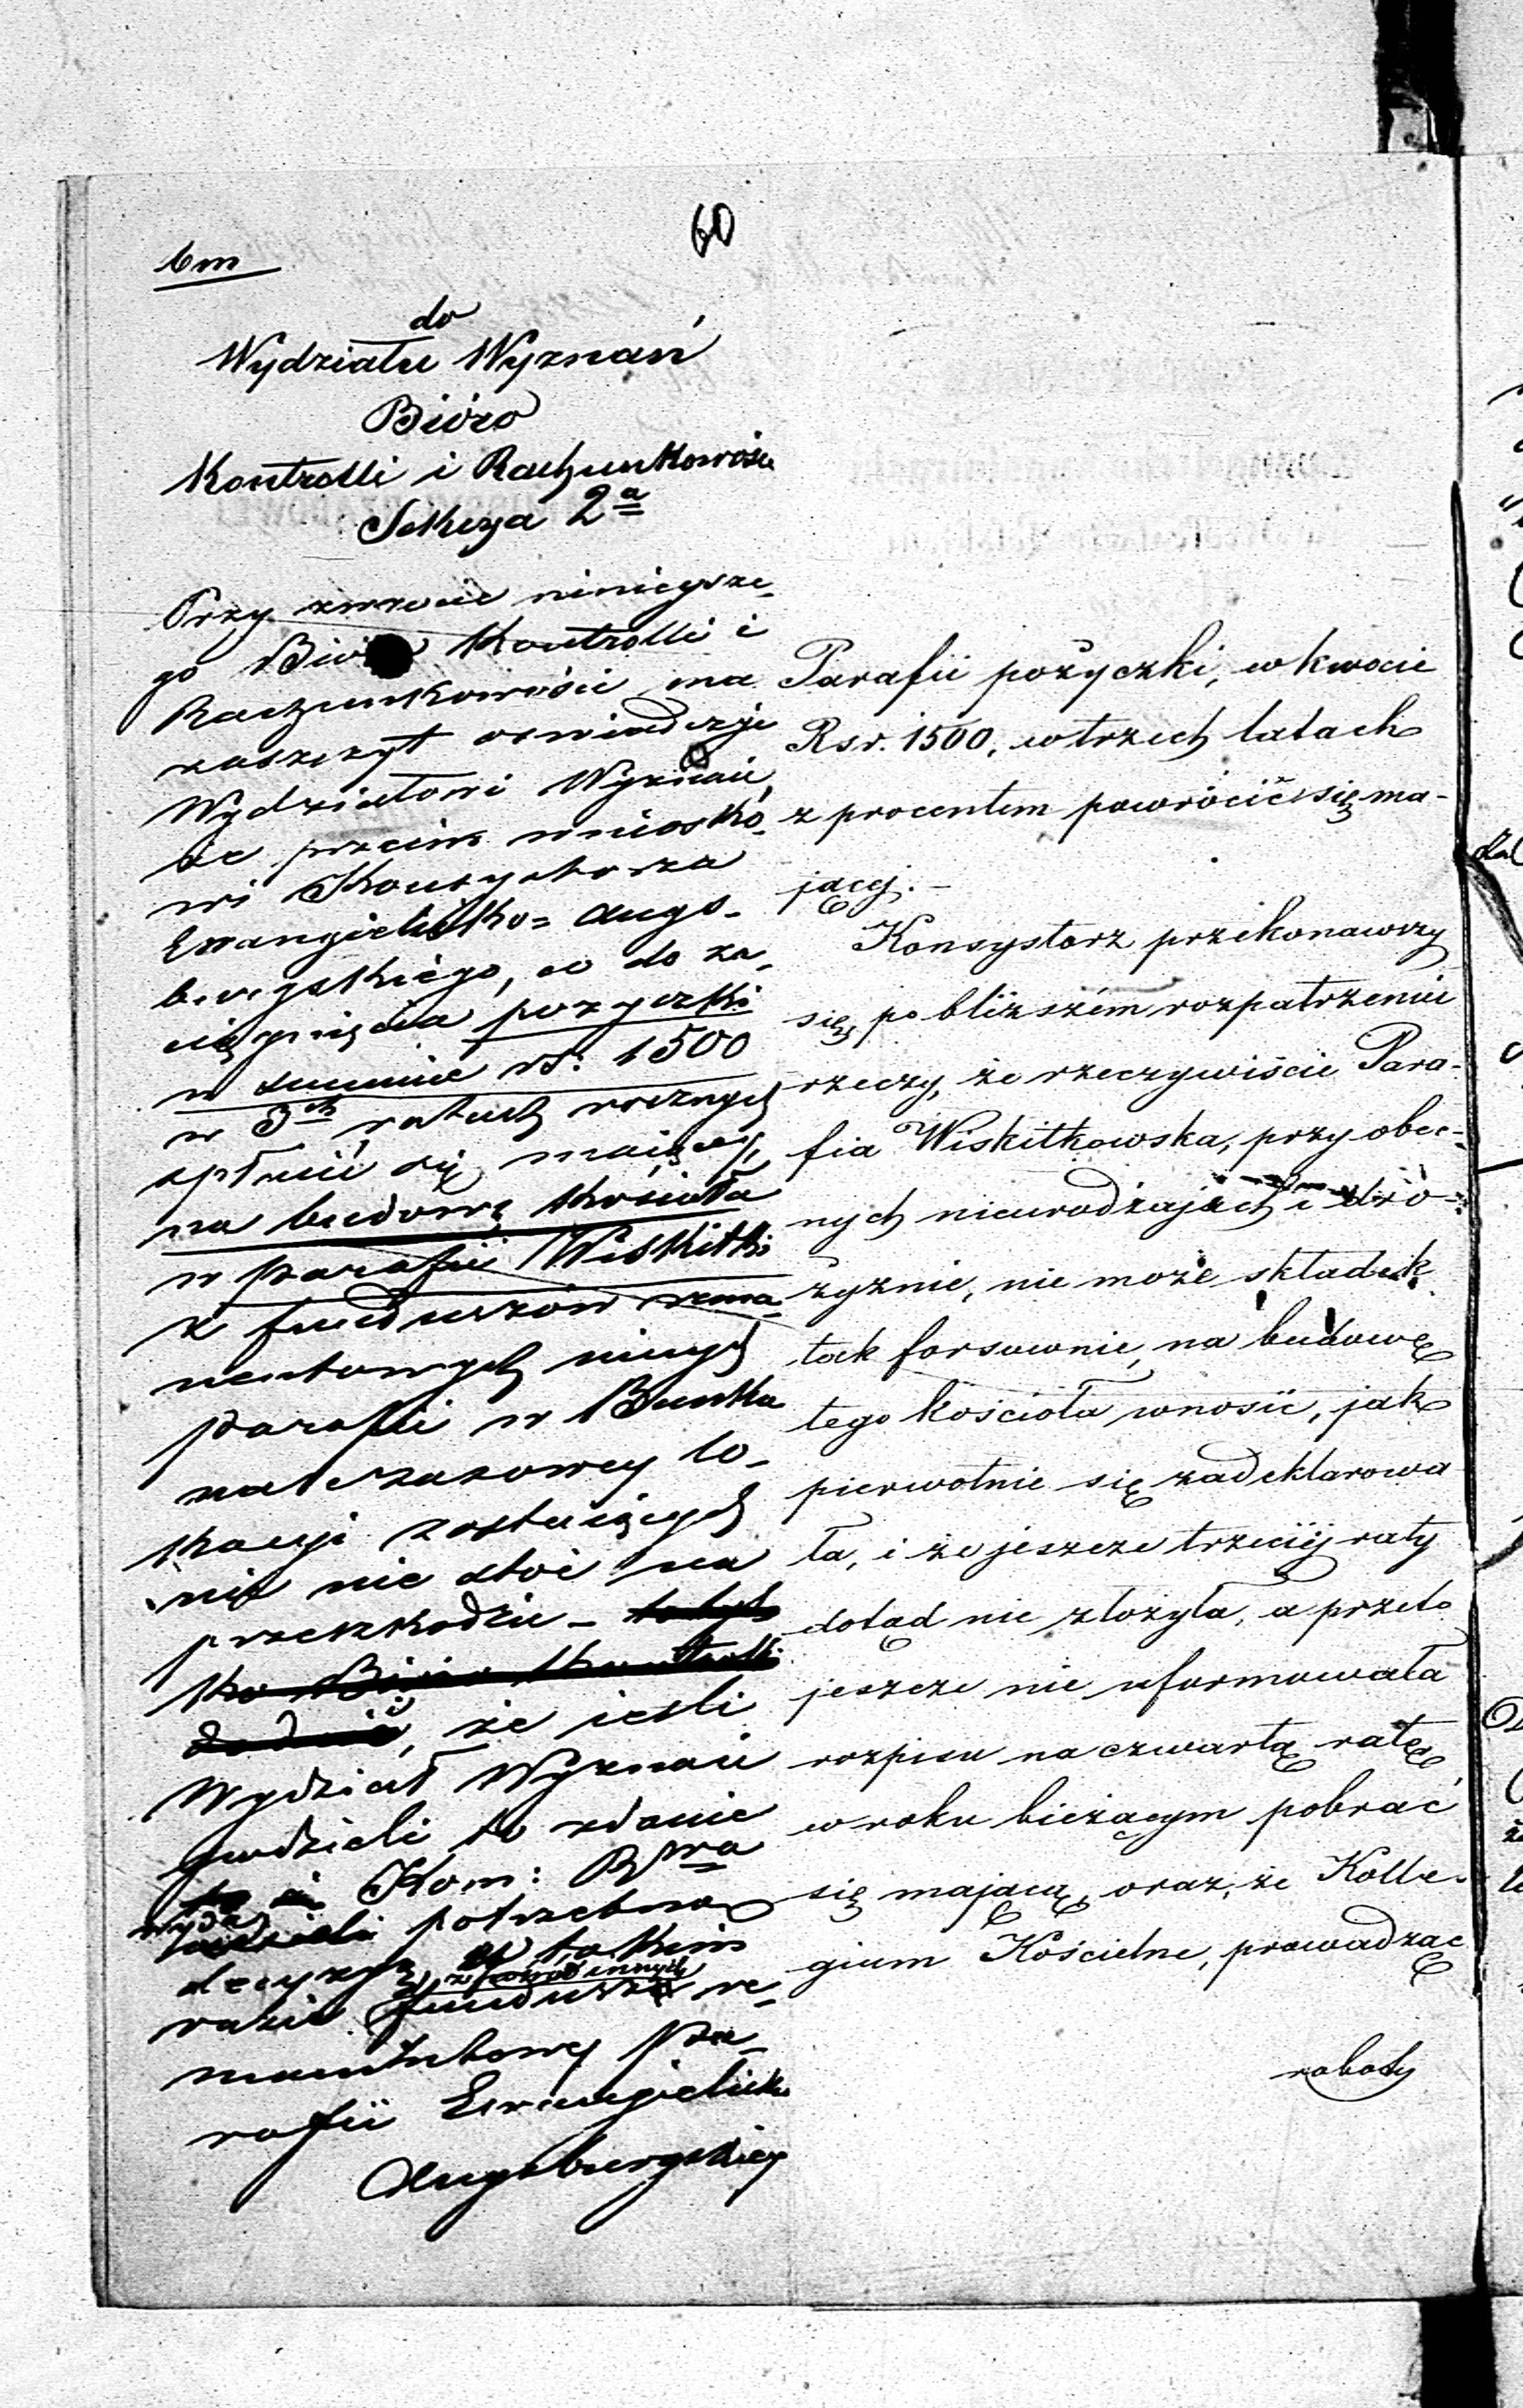 60
do
Wydziału Wyznań
Bióro
Kontrolli i Rachunkowości
Sekcya 2a
Przy zwrocie niniejsze-
go Kontrolli i
Rachunkowości ma
zaszczyt oswiadczyć
Wydziałowi Wyznań,
że przeciw wniosko-
wi Konsystorza
Ewangielicko= Augs-
burgskiego, co do za-
ciągnięcia pożyczki
w summie rs: 1500
w 3ch ratach rocznych
spłacić się maiącej,
na budowę Kościoła
w parafii Wiskitki
z funduszów rema-
nentowych innych
parafii w Banku
na tczasowey lo-
kacyi zostaiących
nic nie stoi na
przeszkodzie – to tyl-
ko Bióro Kontrolli
dodaie, że ieśli
Wydział Wyznań
podzieli to zdanie
Kom: Rwa
wyda potrzebną
decyzyą, w takim
z innych
razie fundusze re-
manentowy pa-
rafii Ewangielicko
Augsburgskiey
Parafii pożyczki, w kwocie
Rsr. 1500, w trzech latach
z procentem powrócić się ma-
jącej. –
Konsystorz przekonawszy
się, po bliższém rozpatrzeniu
rzeczy, że rzeczywiście Para-
fia Wiskitkowska, przy obec-
nych nieurodzajach i dro-
żyznie, nie może składek
tak forsownie, na budowę
tego kościoła wnosić, jak
pierwotnie się zadeklarowa
ła, i że jeszcze trzeciéj raty
dotąd nie złożyła, a przeto
jeszcze nie uformowała
rozpisu na czwartą ratę,
w roku bieżącym pobrać
się mającą, oraz, że Kolle-
gium Kościelne, prowadząc
roboty